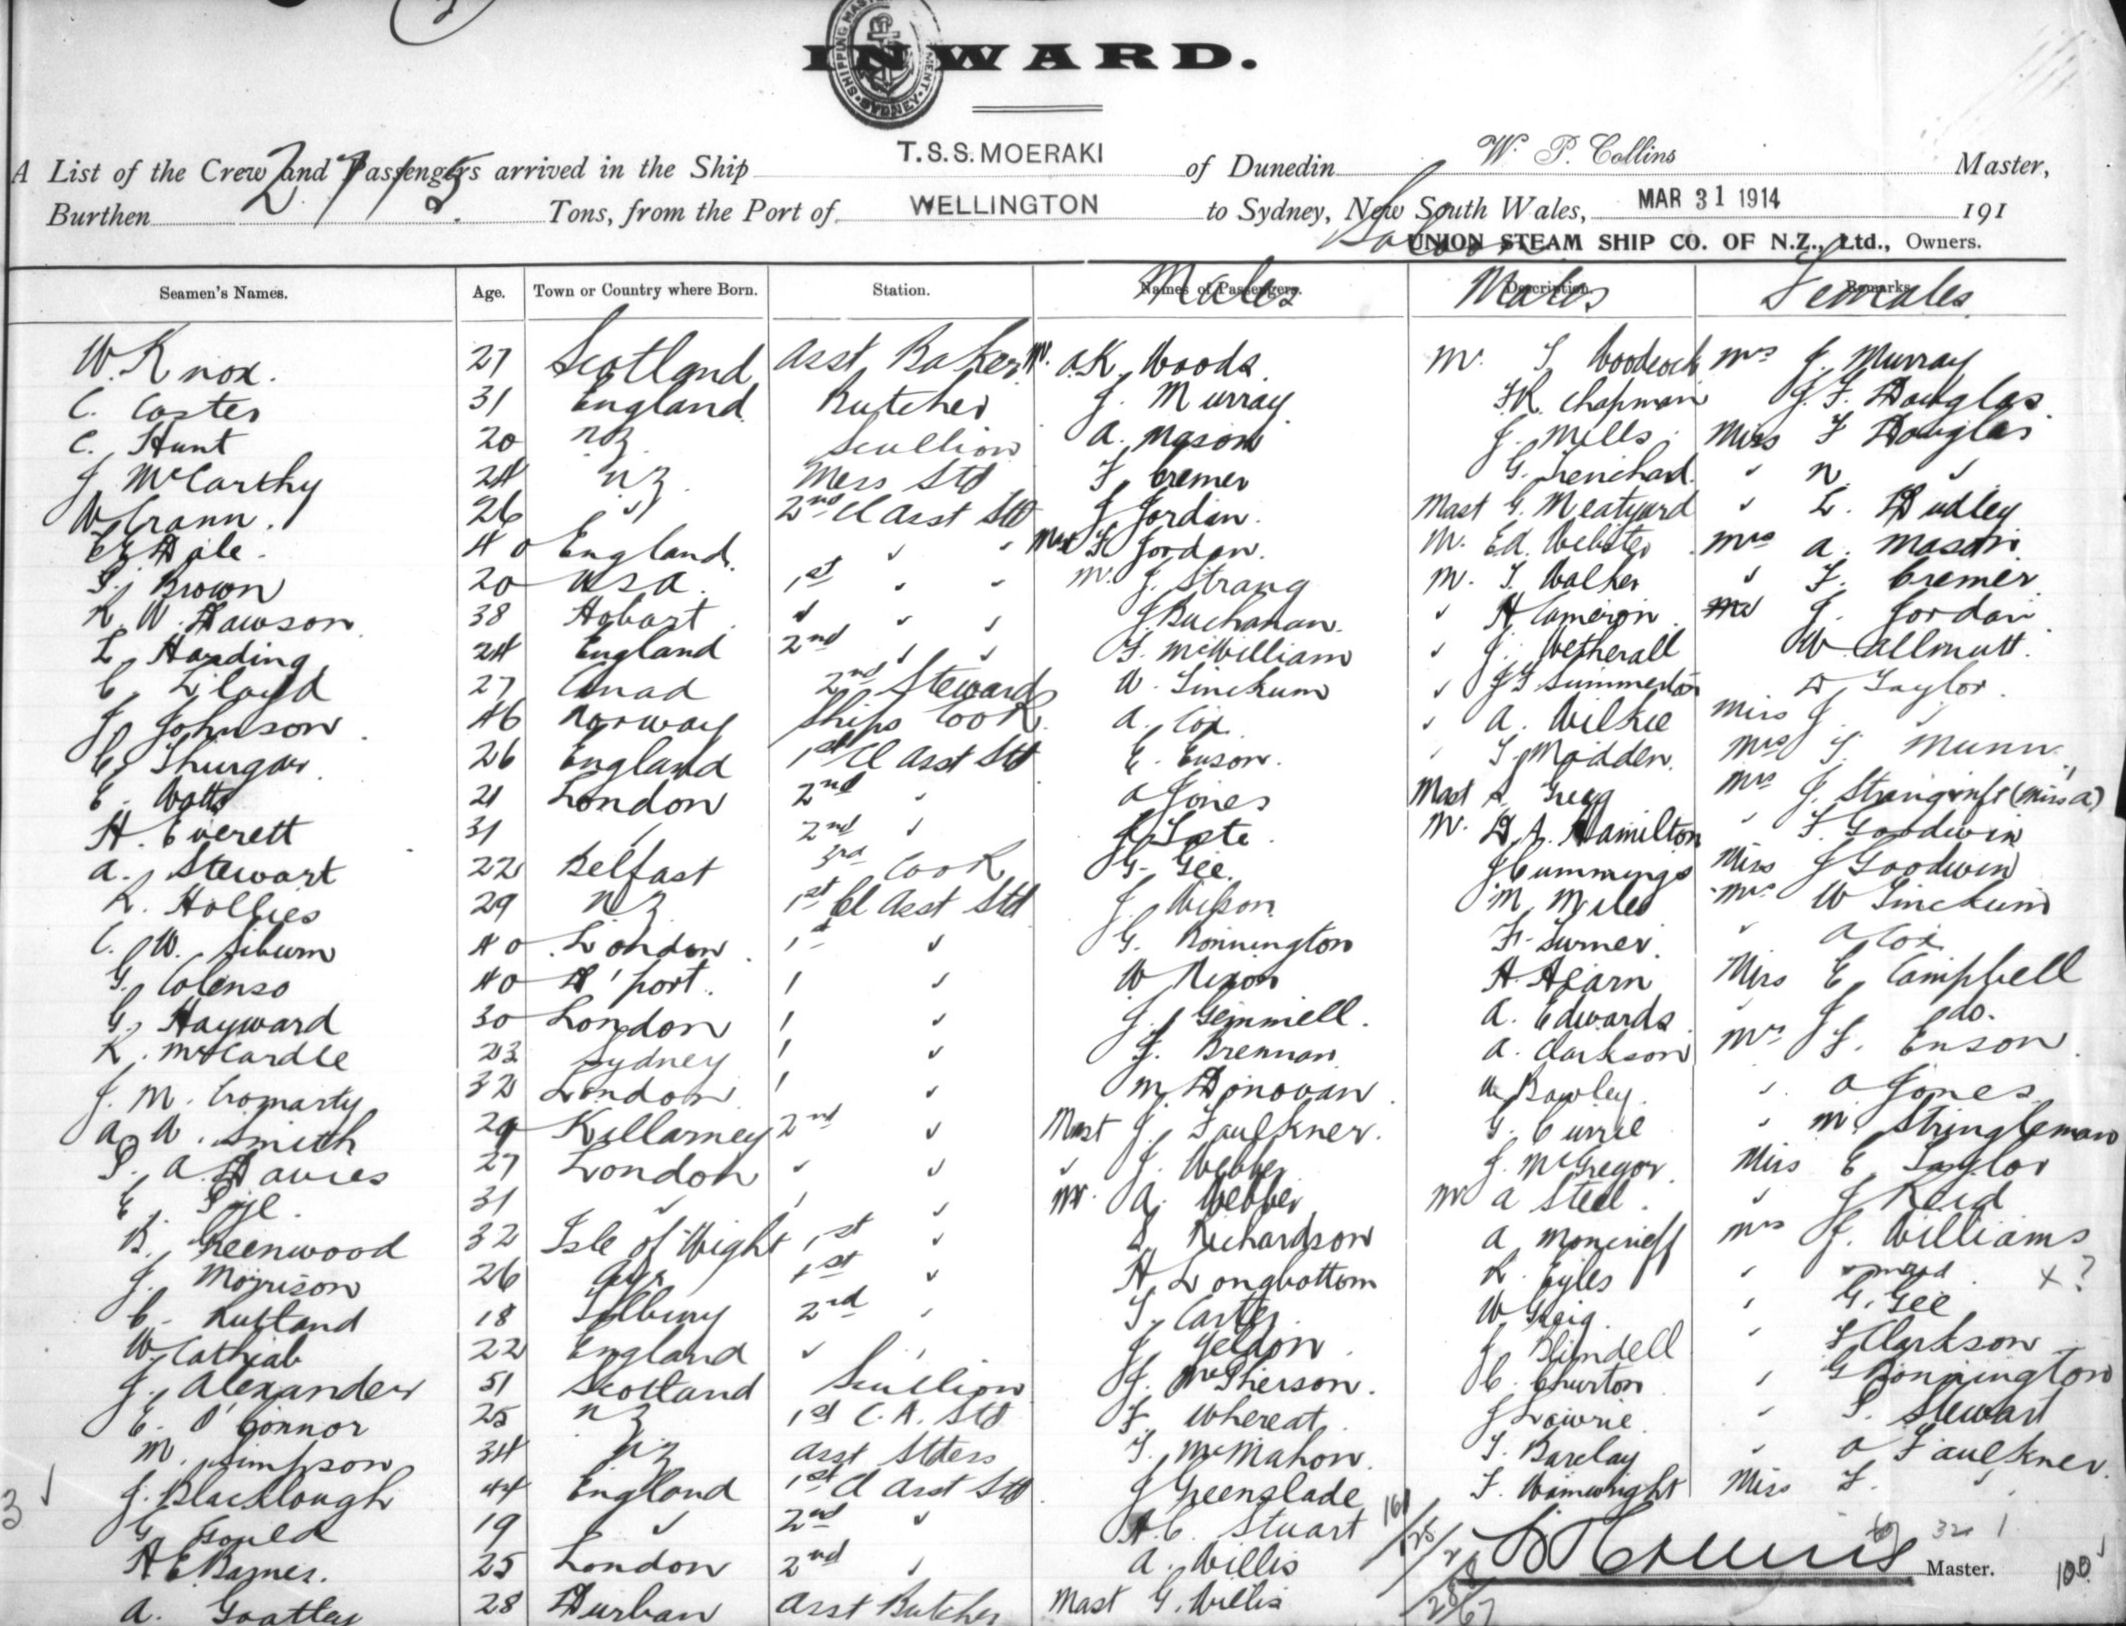 INWARD.
SHIPPING MASTER SYDNEY
A List of the Crew and Passengers arrived in the Ship T.S.S. MOERAKI of Dunedin W. P. Collins Master,
Burthen 2715 Tons, from the Port of WELLINGTON to Sydney, New South Wales, MAR 31 1914 191
Saloon
UNION STEAM SHIP CO. OF N.Z., Ltd., Owners.
Seamen's Names. Age. Town or Country where Born. Station. Names of Passengers. Males Description. Males Remarks. Females
W. Knox. 27 Scotland Asst Baker Mr. A.K. Woods. Mr. T Woodcock Mrs J. Murray
C. Coster 31 England Butcher J. Murray F.R. Chapman J. F. Douglas.
C. Hunt 20 NZ Scullion A. Mason J. Mills. Miss F Douglas
J McCarthy 24 NZ Mess Std F. Cremer G. Trenchard " N "
W. Crann. 26 " 2nd Cl Asst Std J Jordan. Mast G. Meatyard " L. Dudley
Dale. 40 England. " " Mast F. Jordan. Mr. Ed. Webster Mrs A. Mason
Brown 20 USA. 1st " " Mr. J. Strang Mr. T. Walker " F. Cremer
R. W. Dawson 38 Hobart " " " J Buchanan. " H Cameron. Mrs J. Jordan
L. Harding 24 England 2nd " " McWilliam " J. Wetherall W. Allmutt.
C. Lloyd 27 2nd Steward W. Linckum " J T Summerton Taylor.
J. Johnson 46 Norway Ships Cook A. Cox. " A. Wilkie Miss J. "
C. Thurgar 26 England 1st Cl Asst Std E. Enson. " T. Madden. Mrs T. Munn
E. Watts 21 London 2nd " A Jones Mast S. Gregg Mrs J. Strang & inft (Miss A)
H. Everett 31 " 2nd " J. Tate. Mr. D. A. Hamilton " F. Goodwin
A. Stewart 22 Belfast 3rd Cook G. Gee. J Cummings Miss J Goodwin
R. Hollies 29 NZ 1st Cl Asst Std J. Wilson M. Miles Mrs W Linckum
C. W. Siburn 40 London 1st " G. Bonnington F. Turner. " A Cox
G. Colenso 40 D'port. " " W Nixon A. Hearn Miss E. Campbell
G. Hayward 30 London " " J. Gemmell. A. Edwards. " J do.
R. McCardle 23 Sydney " " J. Brennan A. Clarkson Mrs F. Enson
J. M. Cromarty 32 London " " M Donovan Bowley. " A Jones
A. W. Smith 29 Killarney 2nd " Mast J. Faulkner. G. Currie " M. Stringleman
A Davies 27 London " " " J. Webber J. McGregor Miss E. Taylor
E. Pyle. 31 " " " Mr. A. Webber Mr A Steel. " J Reid
B. Greenwood 32 Isle of Wight 1st " S. Richardson A Moncrieff Mrs J. Williams
J. Morrison 26 Ayr 1st " H. Longbottom R. Eyles " x ?
C. Rutland 18 Tilbury 2nd " T. Carter. W Greig. " G. Gee
W. 22 England " " J. Geldon J. Blundell " Clarkson
J. Alexander 51 Scotland Scullion J. McPherson. C. Churton " G Bonnington
E. O'Connor 25 NZ 1st C.A. Std F. Whereat. J Lawrie. " Stewart
M. Simpson 34 NZ Asst Stdess T. McMahon. T. Barclay " A Faulkner.
3 J. Blacklough 44 England 1st Cl Asst Std J Greenslade F. Wainwright Miss F. "
G Gould 19 " 2nd " H.C. Stuart
H E Barnes. 25 London 2nd " A. Willis W P Collins Master. 100
A. Goatley 28 Durban Asst Butcher Mast G. Willis